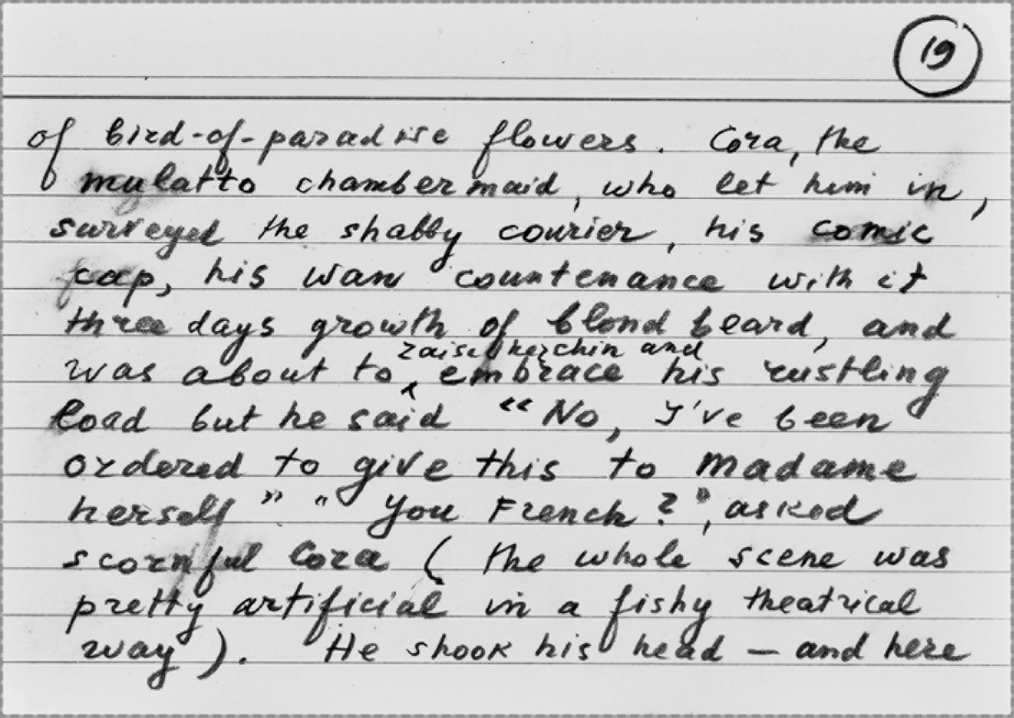 19
of bird-of-paradise flowers. Cora, the
mulatto chambermaid, who let him in,
surveyed the shabby courier, his comic
cap, his wan countenance with it
three days growth of blond beard, and
raise her chin and
was about to ‸ embrace his rustling
load but he said “No, I've been
ordered to give this to Madame
herself” “You French?”, asked
scornful Cora (the whole scene was
pretty artificial in a fishy theatrical
way). He shook his head — and here